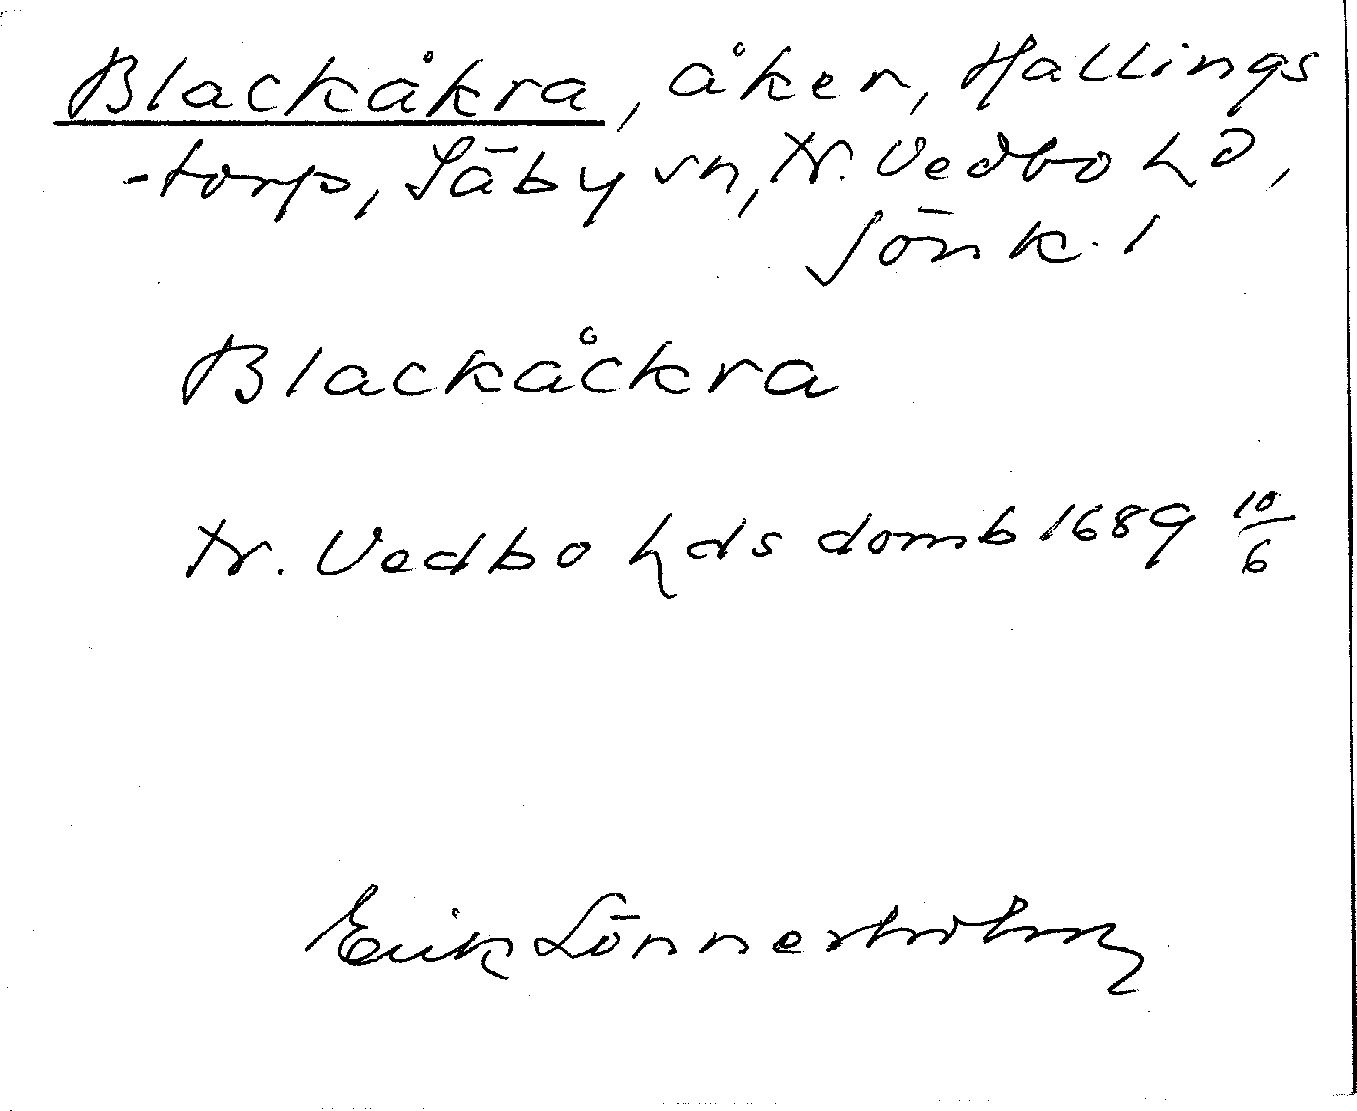 Blackåkra, åker, Hallings
-torp, Säby sn, N. Vedbo hd,
Jönk. l
Blackåckra
N. Vedbo hds domb 1689 10/6
Erik Lönnerholm